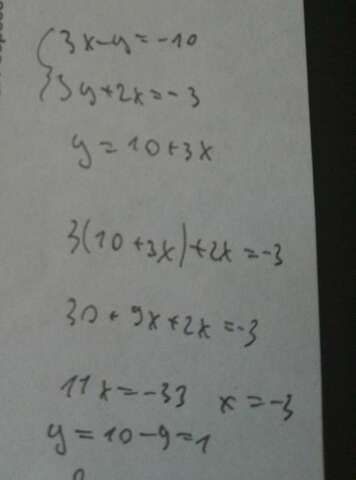 3x-y=-10
3y+2x=-3
y=10+3x
3(10+3x)+2x=-3
30+9x+2x=-3
11x=-33 x=-3
y=10-9=1